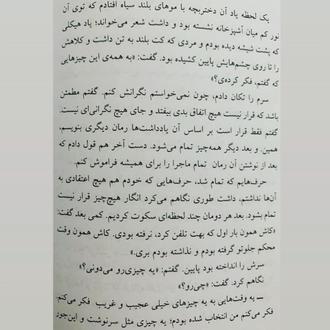 یک لحظه یاد آن دختربچه با موهای بلند سیاه افتادم که توی آن
نور کم میان آشپزخانه نشسته بود و داشت شعر می‌خواند؛ یاد هیکلی
که پشت شیشه دیده بودم و مردی که کت بلند به تن داشت و کلاهش
را تا روی چشم‌هایش پایین کشیده بود. گفت: «به همه‌ی این چیزهایی
که گفتم، فکر کرده‌ی؟»
سرم را تکان دادم، چون نمی‌خواستم نگرانش کنم. گفتم مطمئن
باشد که قرار نیست هیچ اتفاق بدی بیفتد و جای هیچ نگرانی‌ای نیست.
گفتم فقط قرار است بر اساس آن یادداشت‌ها رمان دیگری بنویسم،
همین. و بعد دیگر همه‌چیز تمام می‌شود. دست آخر هم قول دادم که
بعد از نوشتن آن رمان تمام ماجرا را برای همیشه فراموش کنم.
حرف‌هایم که تمام شد، حرف‌هایی که خودم هم هیچ اعتقادی به
آن‌ها نداشتم، داشت طوری نگاهم می‌کرد انگار هیچ‌چیز قرار نیست
تمام بشود. بعد هر دومان چند لحظه‌ای سکوت کردیم. کمی بعد گفت:
«کاش همون بار اول که بهت تلفن کرد، نرفته بودی. کاش همون وقت
محکم جلوتو گرفته بودم و نذاشته بودم بری.»
سرش را انداخته بود پایین. گفتم: «یه چیزی‌رو می‌دونی؟»
نگاهم کرد. گفت: «چی‌رو؟»
ــ یه وقت‌هایی به چیزهای خیلی عجیب و غریب فکر می‌کنم
فکر می‌کنم من انتخاب شده بودم؛ یه چیزی مثل سرنوشت و این‌جور